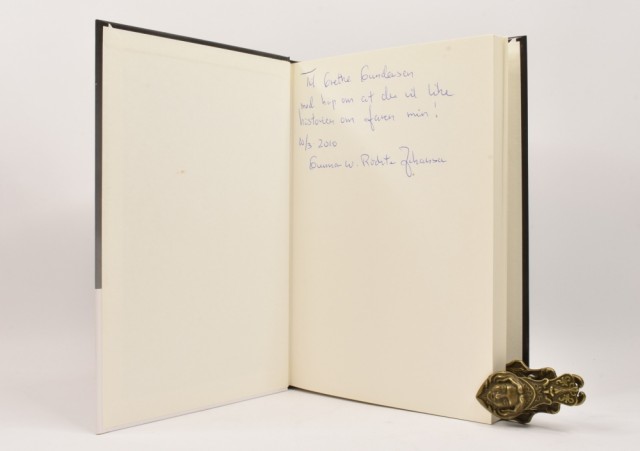 Til Grethe Gundersen
med håp om at du vil like
historien om faren min!
2000
Gunnar W. Johansen